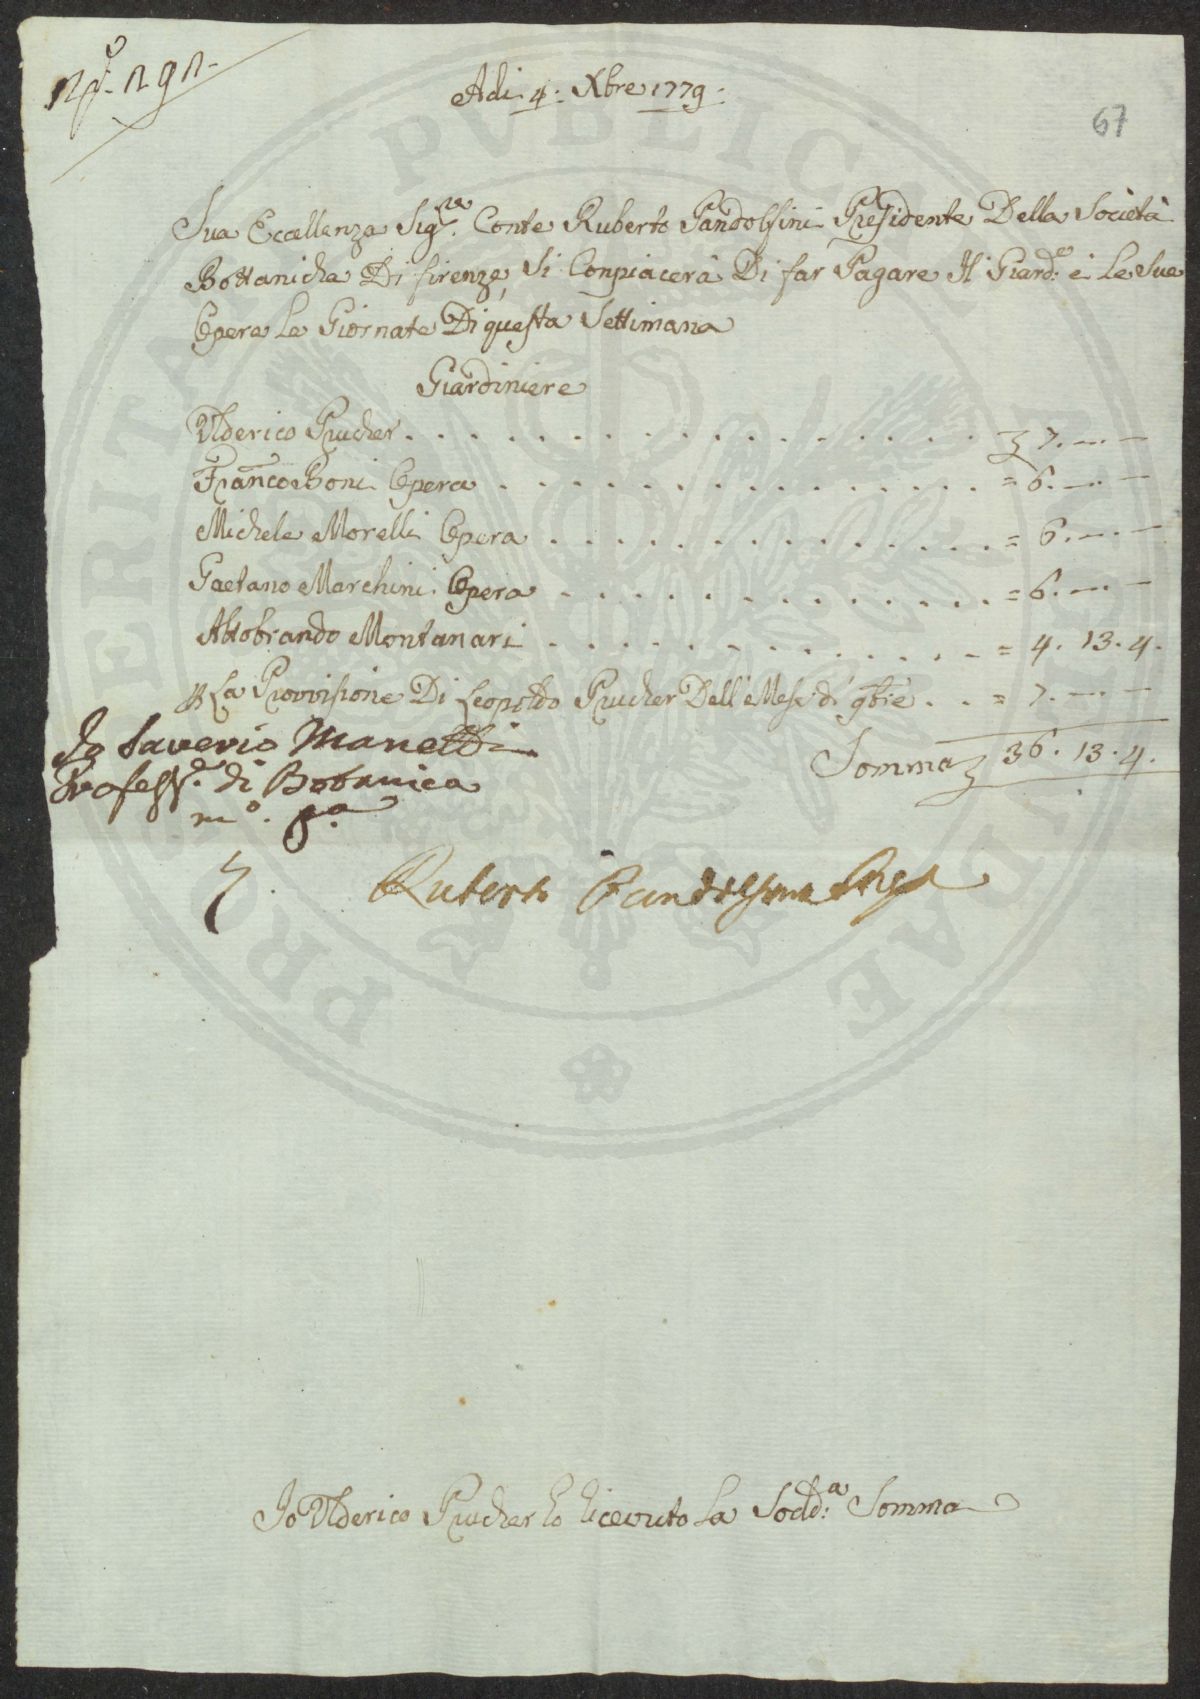 Adi. 4: Xbre 1779:
67
Sua Eccellenza Sig:re Conte Ruberto Pandolfini Presidente Della Società
Bottanicha Di firenze, Si Conpiacerà Di far Pagare Il Giard:e è Le Sue
Opera Le Giornate Di questa Settimana
Giardiniere
Ulderico Prucher . . . . . . . . . . . . . . . . 7. —. —
Franco Boni Opera . . . . . . . . . . . . . . = 6. —. —
Michele Morelli Opera . . . . . . . . . . . . . = 6. —. —
Gaetano Marchini Opera . . . . . . . . . . . . . = 6. —. —
Aldobrando Montanari . . . . . . . . . . . . . = 4. 13. 4.
La Provvisione Di Leopoldo Prucher Dell'Mese di 9bre . . = 7. —. —
Somma 36. 13. 4.
Io Saverio Manetti
Profess.e di Botanica
m.o p.a
Ruberto Pandolfini
Io Ulderico Prucher ho ricevuto La Sodd:a Somma
PROSPERITATI PUBLICAE